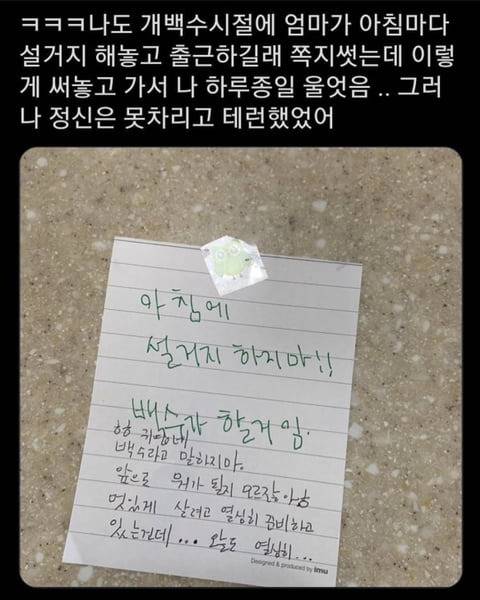 ㅋㅋㅋ나도 개백수시절에 엄마가 아침마다
설거지 해놓고 출근하길래 쪽지썻는데 이렇
게 써놓고 가서 나 하루종일 울엇음 .. 그러
나 정신은 못차리고 테런했었어
아침에
설거지 하지마!!
백수가 할거임.
백수라고 말하지마.
앞으로 뭐가 될지 모르잖아
멋있게 살려고 열심히 준비하고
있는건데... 오늘도 열심히...
Designed & produced by Imu